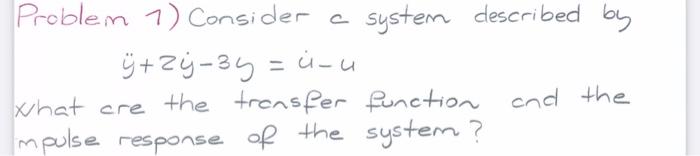 Problem 1) Consider a system described by
ÿ+2ẏ-3y = u̇-u
What are the transfer function and the
mpulse response of the system?